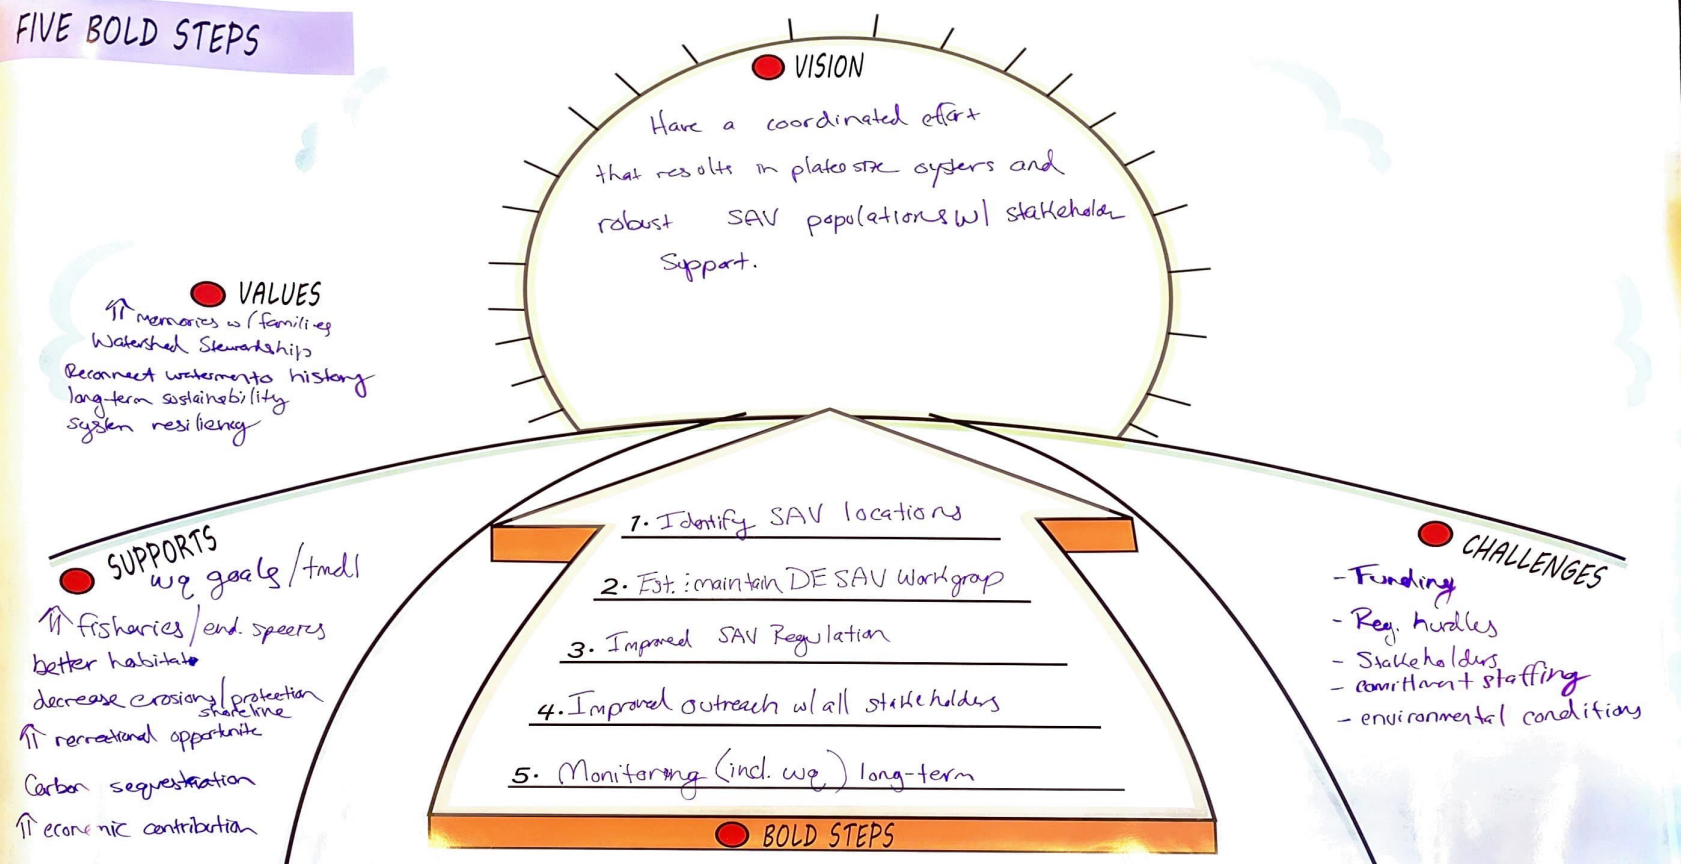 FIVE BOLD STEPS
VISION
Have a coordinated effort
that results in plate size oysters and
robust SAV populations w/ stakeholder
Support.
VALUES
⇑ Memories w/ families
Watershed Stewardship
Reconnect watermen to history
long-term sustainability
system resiliency
SUPPORTS
wq goals/tmdl
⇑ fisheries/end. species
better habitat
decrease erosion/protection
shoreline
⇑ recreational opportunite
Carbon sequestration
⇑ economic contribution
1. Identify SAV locations
2. Est. : maintain DE SAV Workgroup
3. Improved SAV Regulation
4. Improved outreach w/ all stakeholders
5. Monitoring (incl. wq) long-term
BOLD STEPS
CHALLENGES
- Funding
- Reg. hurdles
- Stakeholders
- comittment staffing
- environmental conditions